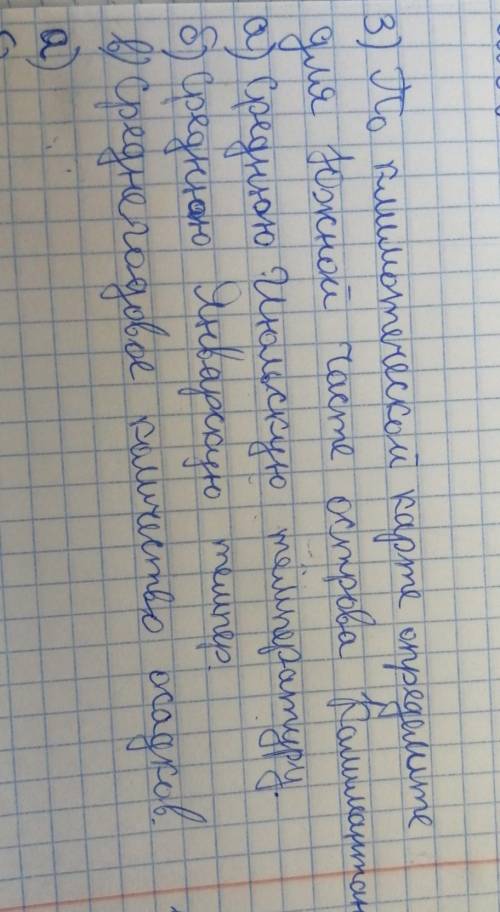 3) По климотической карте определите
для Южной части острова Калимантан
а) Среднюю Июльскую температуру.
б) Среднюю Январскую темпер.
в) Среднегодовое количество осадков.
а)